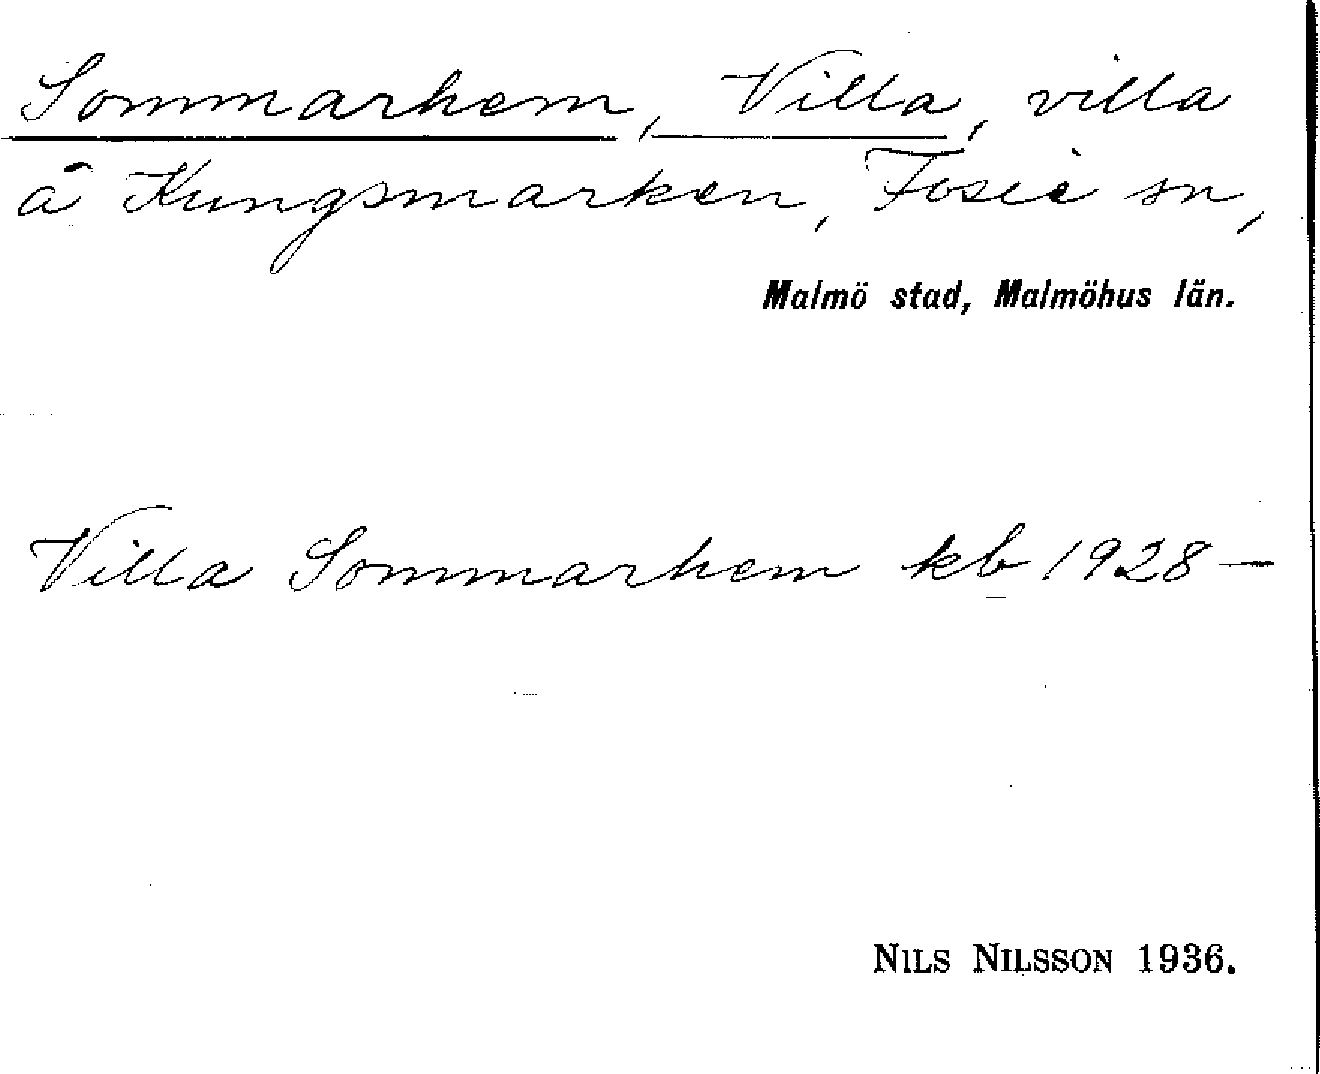 Sommarhem, Villa, villa
å Kungsmarken, Fosie sn,
Malmö stad, Malmöhus län.
Villa Sommarhem kb 1928–
NILS NILSSON 1936.